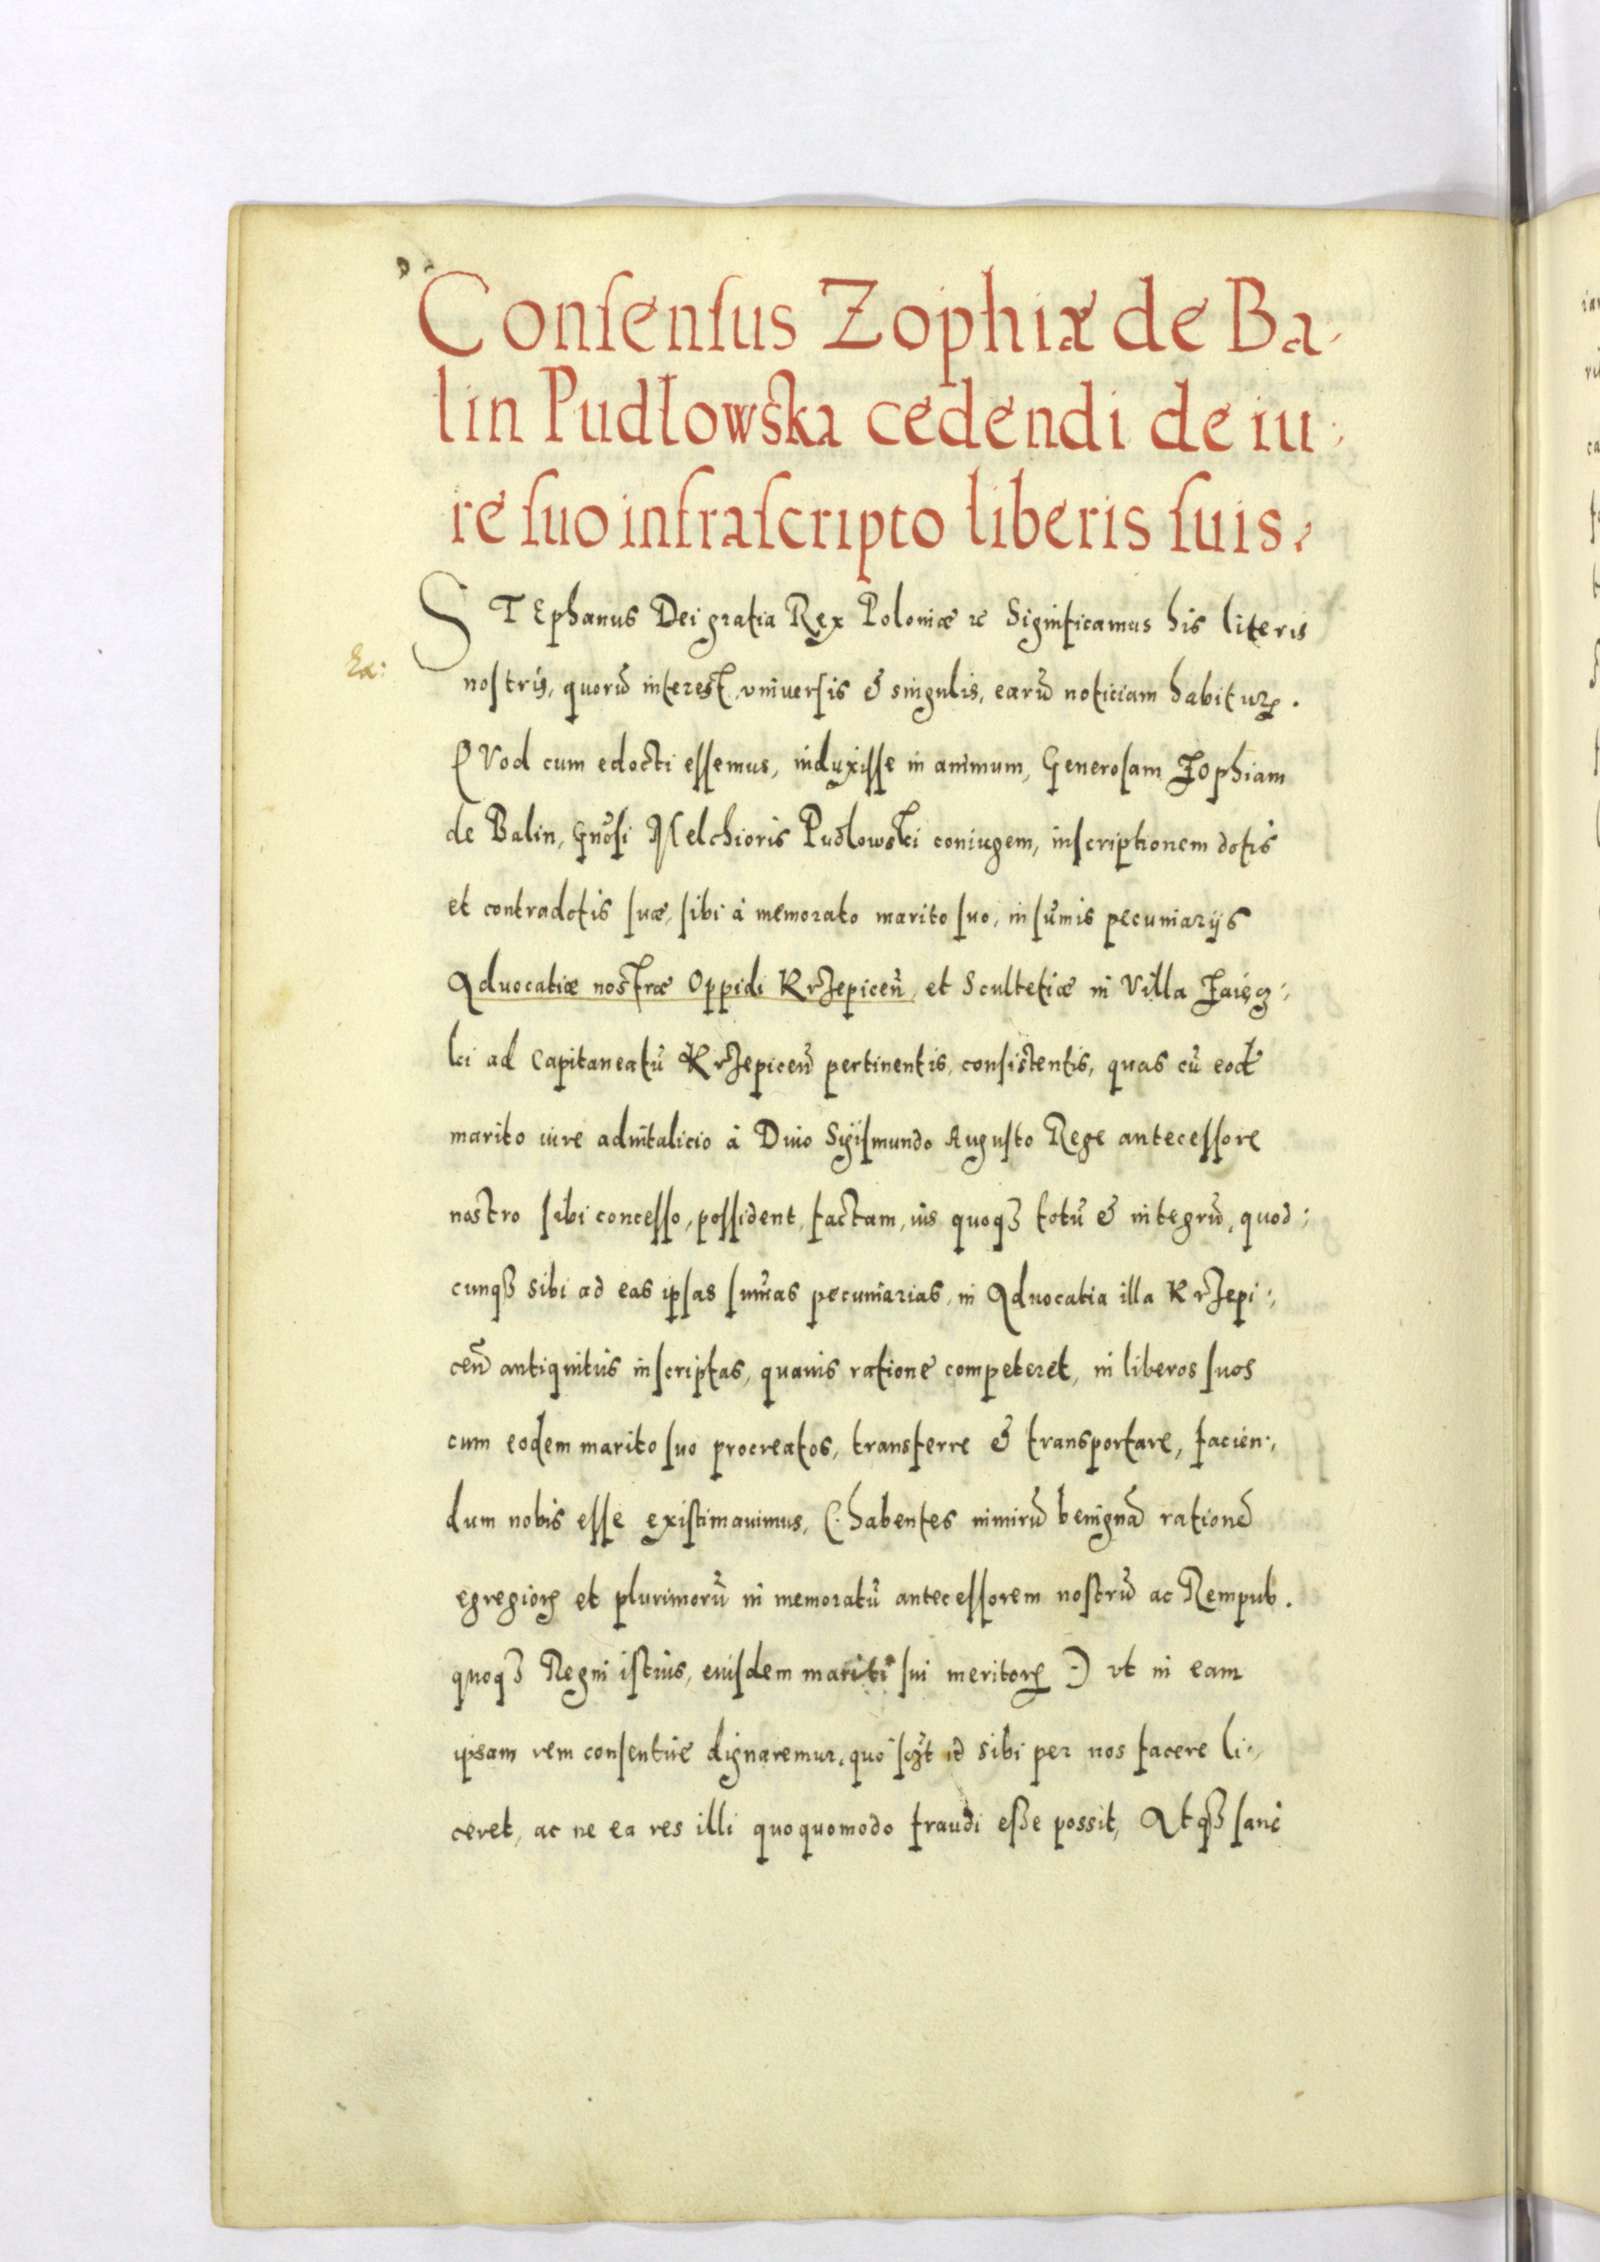 Consensus Zophiæ de Ba-
lin Pudlowska cedendi de iu-
re suo infrascripto liberis suis.
STEphanus Dei gratia Rex Poloniæ &c Significamus his literis
nostris, quorū interest, vniuersis & singulis, earū noticiam habiturꝝ.
QVod cum edocti essemus, induxisse in animum, Generosam Zophiam
de Balin, Gnōsi Melchioris Pudlowski coniugem, inscriptionem dotis
et contradotis suæ, sibi à memorato marito suo, in sūmis pecuniarijs
Aduocatiæ nostræ Oppidi Krzepiceñ, et Scultetiæ in Villa Zaięcz-
ki ad Capitaneatū Krzepiceñ pertinentis, consistentis, quas cū eodē
marito iure aduitalicio à Diuo Sigismundo Augusto Rege antecessore
nostro sibi concesso, possident, factam, ius quoqꝫ totū & integrū, quod-
cunqꝫ sibi ad eas ipsas sum̄as pecuniarias, in Aduocatia illa Krzepi-
ceñ antiquitùs inscriptas, quauis ratione competeret, in liberos suos
cum eodem marito suo procreatos, transferre & transportare, facien-
dum nobis esse existimauimus, (habentes nimirū benignā rationē
egregiorꝝ et plurimorū in memoratū antecessorem nostrū ac Rempub.
quoqꝫ Regni istius, eiusdem mariti sui meritorꝝ) vt in eam
ipsam rem consentire dignaremur, quo id sibi per nos facere li-
ceret, ac ne ea res illi quoquomodo fraudi esse possit, Atqꝫ sanè